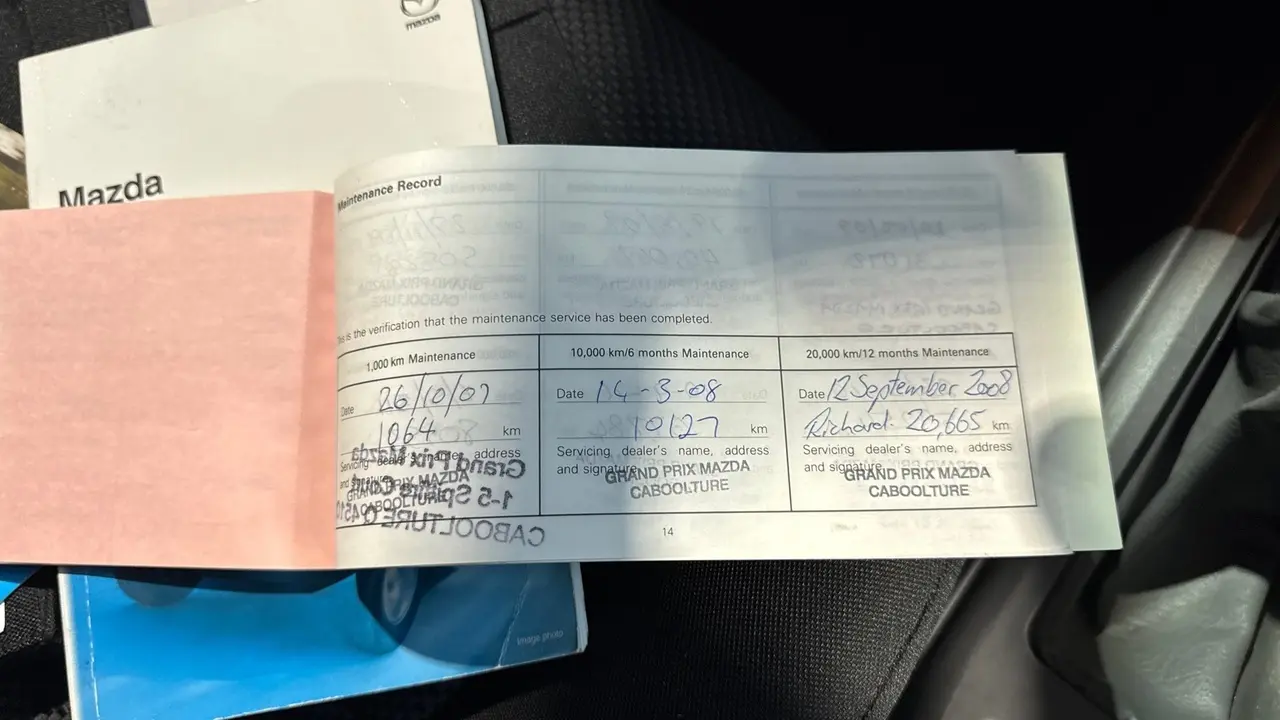 mazda
Mazda
Maintenance Record
This is the verification that the maintenance service has been completed.
1,000 km Maintenance
Date 26/10/07
1064 km
Servicing dealer's name, address
GRAND PRIX MAZDA
CABOOLTURE
Grand Prix Mazda
1-5 Spiers Court
CABOOLTURE Q 4510
10,000 km/6 months Maintenance
Date 14-3-08
10127 km
Servicing dealer's name, address
and signature
GRAND PRIX MAZDA
CABOOLTURE
20,000 km/12 months Maintenance
Date 12 September 2008
Richard. 20,665 km
Servicing dealer's name, address
and signature
GRAND PRIX MAZDA
CABOOLTURE
14
Image photo